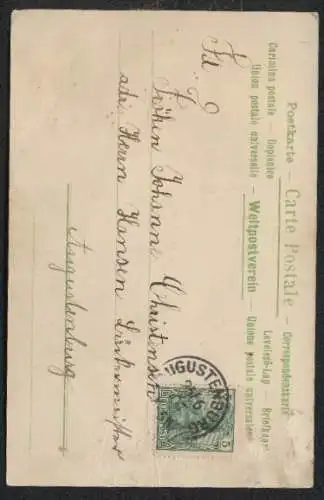 Postkarte — Carte Postale — Correspondenzkarte
Cartolina postale Dopisnice Levelező-Lap — Briefkaart
Union postale universelle — Weltpostverein — Unione postale universale
Johanne Christensen
adr. Herrn Hansen
Augustenburg
AUGUSTENBURG
5